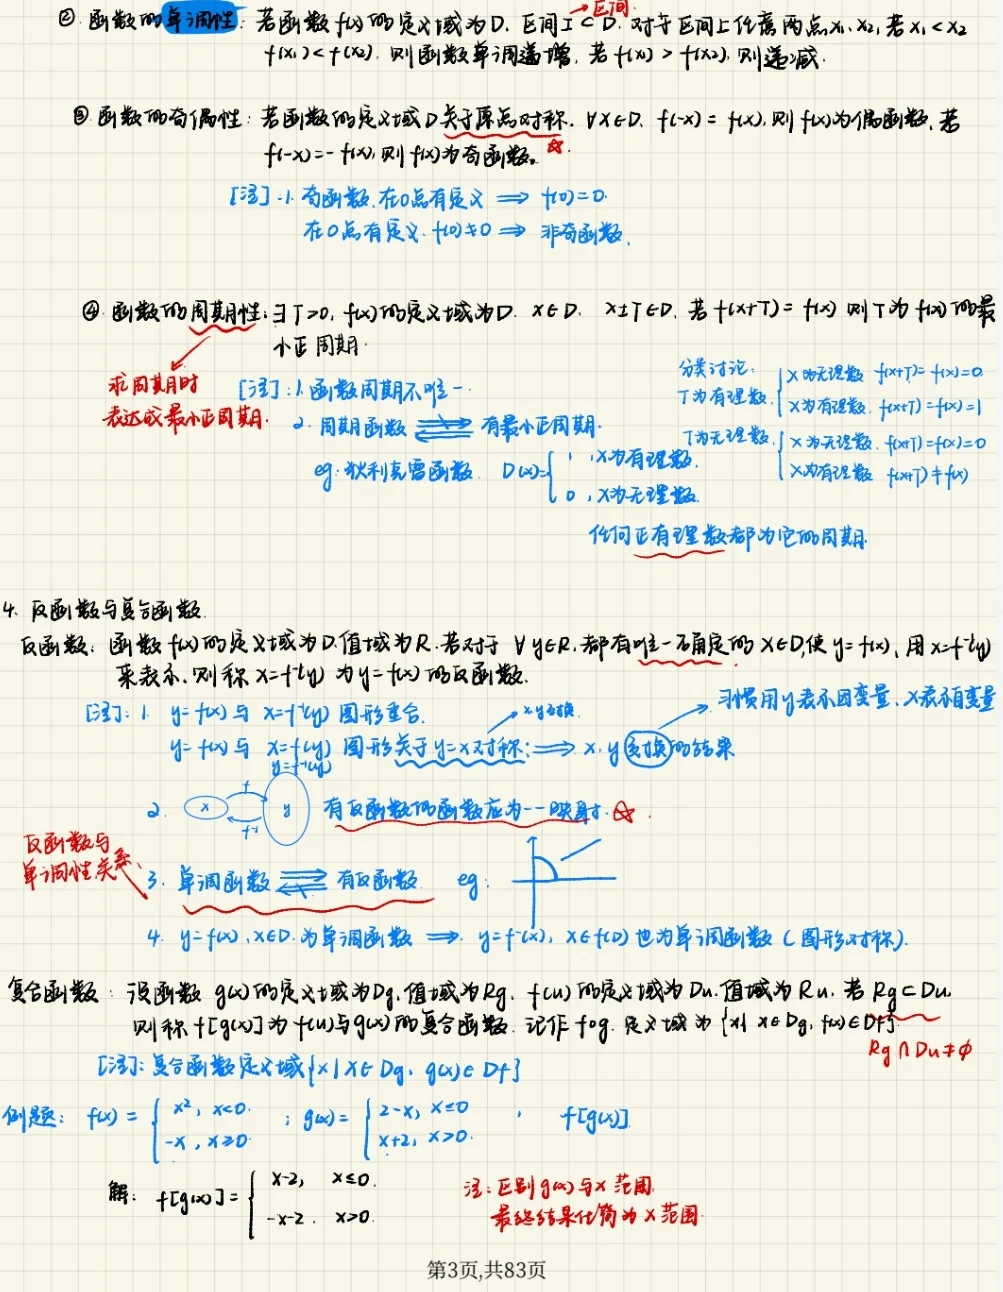 →区间
② 函数的单调性：若函数 f(x) 的定义域为 D. 区间 I ⊂ D. 对于区间上任意两点 x₁、x₂, 若 x₁ < x₂
f(x₁) < f(x₂). 则函数单调递增, 若 f(x₁) > f(x₂), 则递减.
③ 函数的奇偶性：若函数的定义域 D 关于原点对称. ∀x∈D. f(-x) = f(x), 则 f(x) 为偶函数, 若
f(-x) = -f(x), 则 f(x) 为奇函数。☆.
[注]. 1. 奇函数. 在0点有定义 ⟹ f(0)=0.
在0点有定义. f(0)≠0 ⟹ 非奇函数.
④ 函数的周期性：∃T>0, f(x) 的定义域为 D. x∈D. x±T∈D. 若 f(x+T) = f(x) 则 T 为 f(x) 的最
小正周期.
求周期时
表达成最小正周期.
[注]: 1. 函数周期不唯一.
2. 周期函数 ⇌ 有最小正周期.
eg: 狄利克雷函数. D(x)={ 1 , x为有理数.
0 , x为无理数.
分类讨论:
T为有理数. { x为无理数 f(x+T)=f(x)=0
x为有理数. f(x+T)=f(x)=1
T为无理数. { x为无理数. f(x+T)=f(x)=0
x为有理数 f(x+T)≠f(x)
任何正有理数都为它的周期.
4. 反函数与复合函数.
反函数：函数 f(x) 的定义域为 D. 值域为 R. 若对于 ∀y∈R. 都有唯一石角定的 x∈D, 使 y=f(x), 用 x=f⁻¹(y)
来表示. 则称 x=f⁻¹(y) 为 y=f(x) 的反函数.
[注]: 1. y=f(x) 与 x=f⁻¹(y) 图形重合.
→ x.y互换.
→ 习惯用y表示因变量、x表示自变量
y=f(x) 与 x=f(y) 图形关于 y=x 对称: ⟹ x.y 互换的结果
y=f⁻¹(y)
2. x f f⁻¹ y 有反函数的函数应为一一映射. ☆.
反函数与
单调性关系.
3. 单调函数 ⇌ 有反函数. eg:
4. y=f(x), x∈D. 为单调函数 ⟹. y=f⁻¹(x), x∈f(D) 也为单调函数 (图形对称).
复合函数：设函数 g(x) 的定义域为 Dg. 值域为 Rg. f(u) 的定义域为 Du. 值域为 Ru. 若 Rg⊂Du.
则称 f[g(x)] 为 f(u) 与 g(x) 的复合函数. 记作 f∘g. 定义域为 {x| x∈Dg, f(x)∈Df}.
Rg∩Du≠∅
[注]: 复合函数定义域 {x|x∈Dg, g(x)∈Df}
例题: f(x) = { x², x<0. ; g(x)= { 2-x, x≤0 , f[g(x)].
-x, x≥0. x+2, x>0.
解: f[g(x)] = { x-2, x≤0.
-x-2. x>0.
注: 区别 g(x) 与 x 范围.
最终结果化简为 x 范围.
第3页,共83页